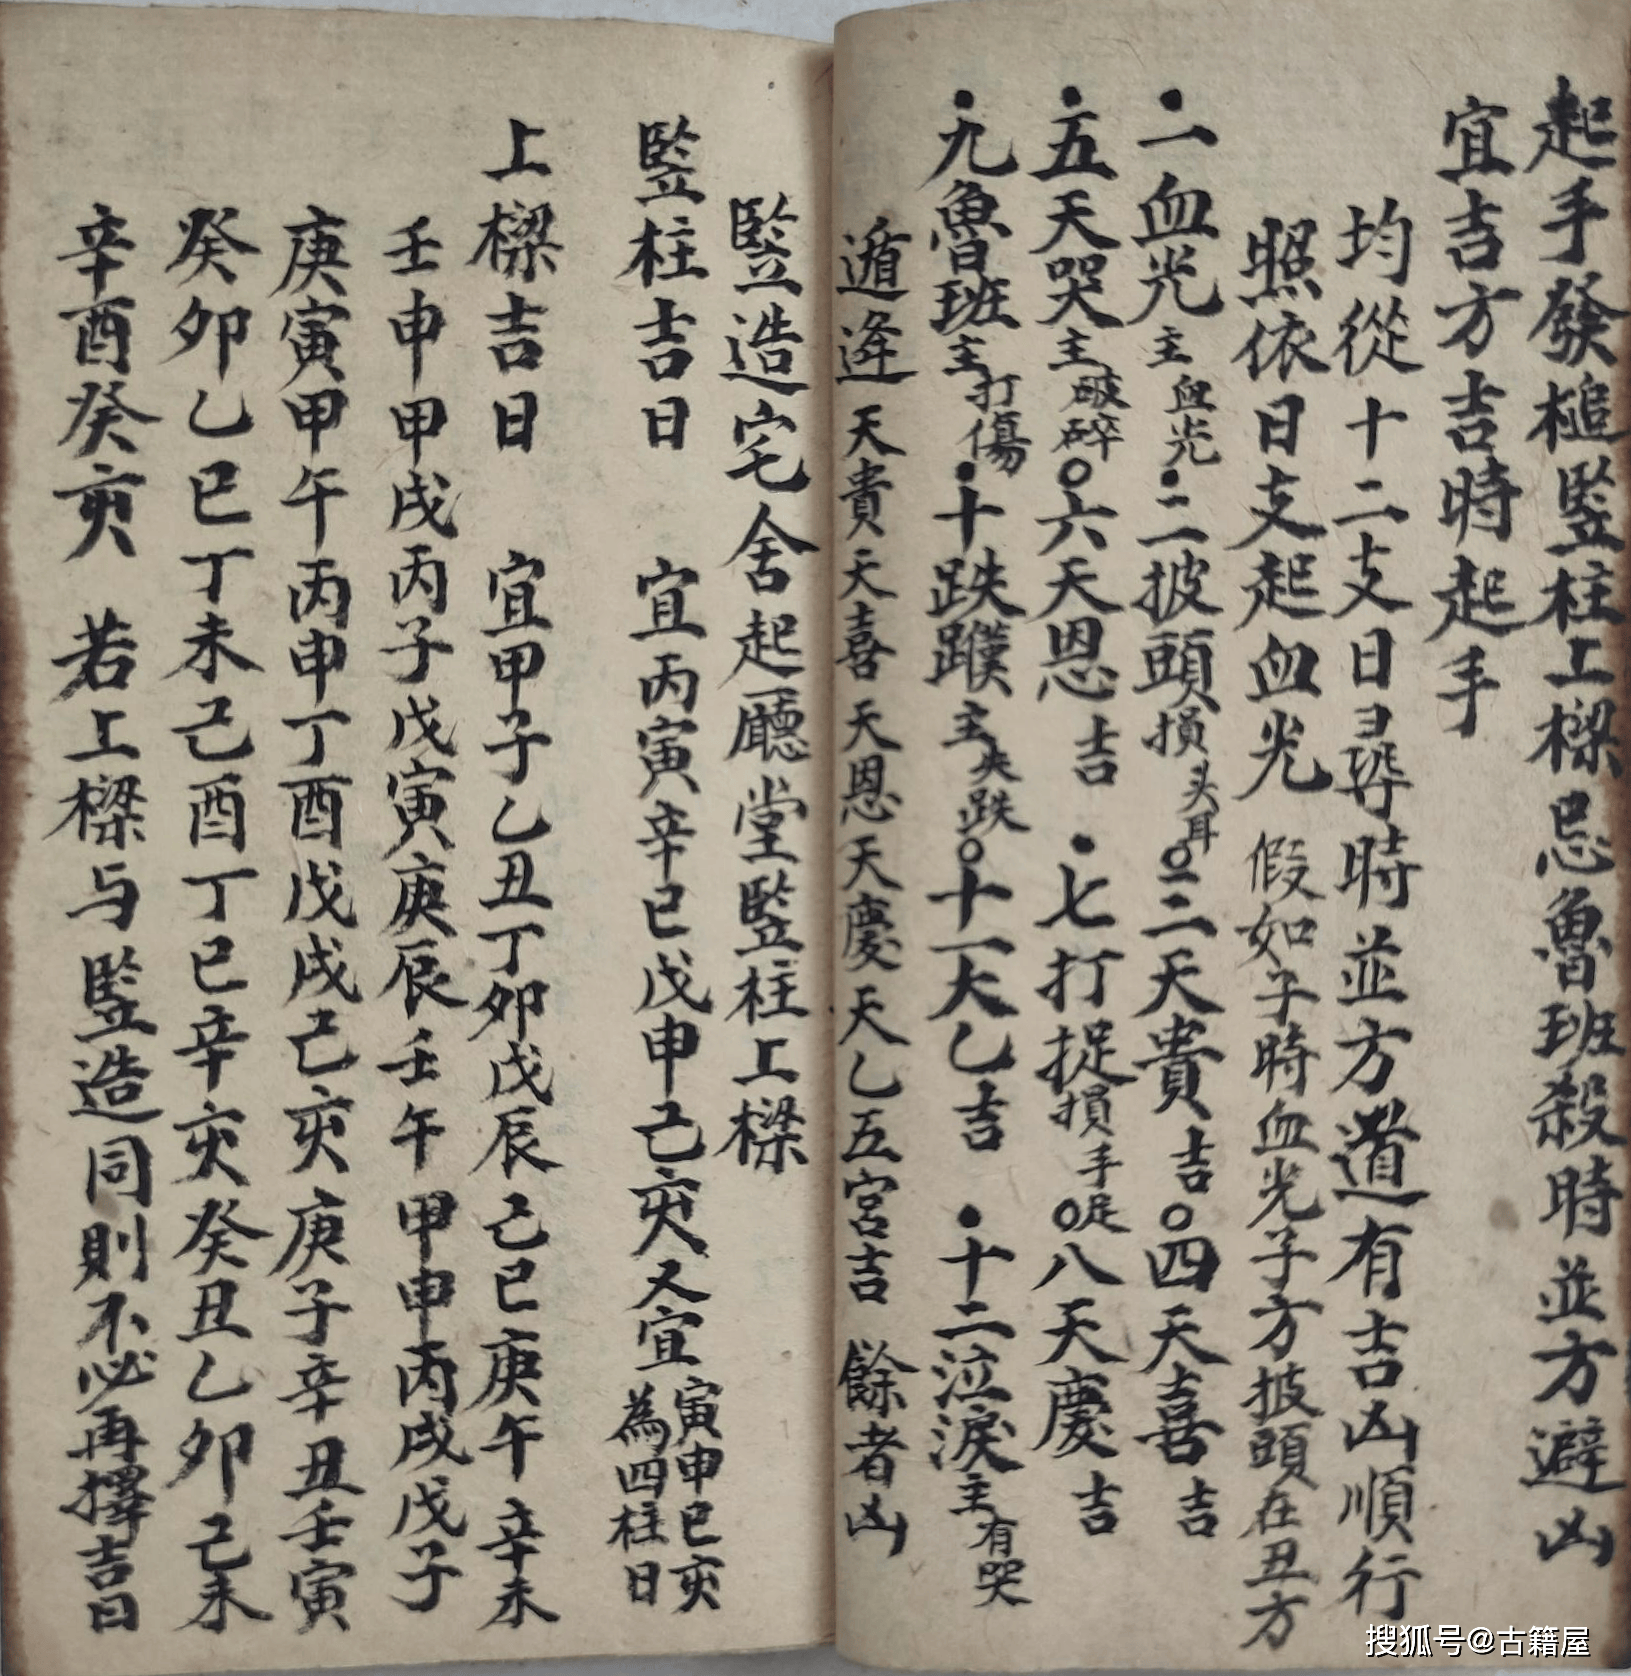 起手發槌竪柱上樑忌魯班殺時並方避凶
宜吉方吉時起手
均從十二支日尋時並方道有吉凶順行
照依日支起血光 假如子時血光子方披頭在丑方
•一血光主血光•二披頭損头耳○三天貴吉○四天喜吉
•五天哭主破碎○六天恩吉•七打捉損手足○八天慶吉
•九魯班主打傷•十跌蹼主失跌○十一太乙吉•十二泣淚主有哭
遁逢天貴天喜天恩天慶天乙五宮吉 餘者凶
竪造宅舍起廳堂竪柱上樑
竪柱吉日 宜丙寅辛巳戊申己亥又宜寅申巳亥為四柱日
上樑吉日 宜甲子乙丑丁卯戊辰己巳庚午辛未
壬申甲戌丙子戊寅庚辰壬午甲申丙戌戊子
庚寅甲午丙申丁酉戊戌己亥庚子辛丑壬寅
癸卯乙巳丁未己酉丁巳辛亥癸丑乙卯己未
辛酉癸亥 若上樑与竪造同則不必再擇吉日
搜狐号@古籍屋